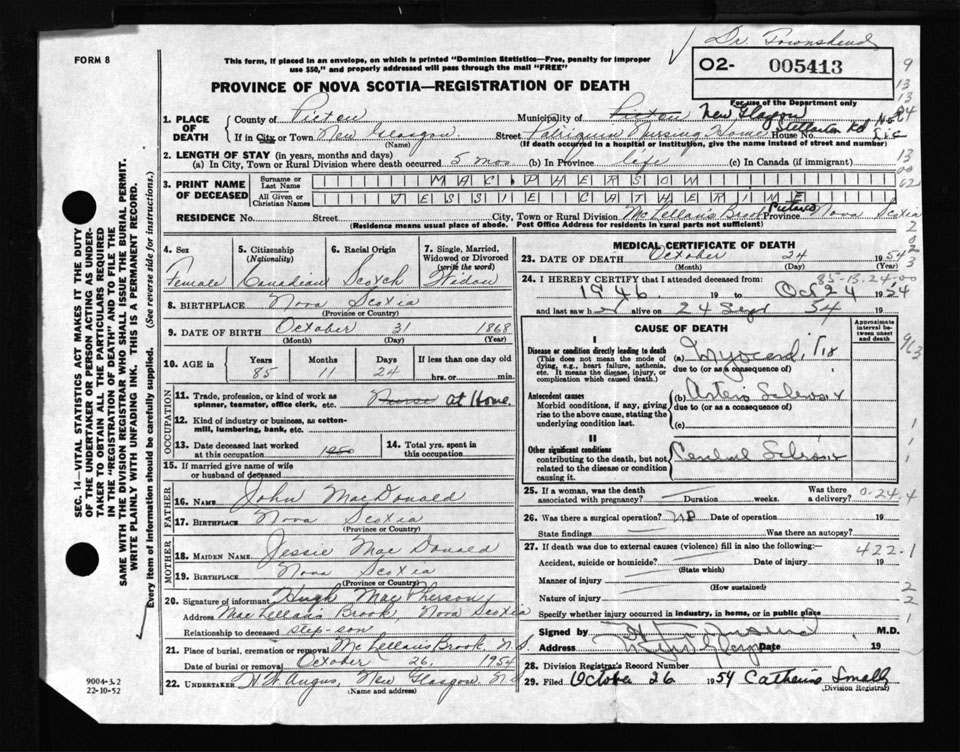 Dr. Townshend
FORM 8
This form, if placed in an envelope, on which is printed "Dominion Statistics—Free, penalty for improper
use $50," and properly addressed will pass through the mail "FREE"
O2- 005413
For use of the Department only
PROVINCE OF NOVA SCOTIA—REGISTRATION OF DEATH
1. PLACE OF DEATH
County of Pictou Municipality of Pictou New Glasgow
If in City or Town New Glasgow Street Nursing Home House No. Stellarton Rd
(Name) (If death occurred in a hospital or institution, give the name instead of street and number)
2. LENGTH OF STAY (in years, months and days)
(a) In City, Town or Rural Division where death occurred 5 mos (b) In Province life (c) In Canada (if immigrant)
3. PRINT NAME OF DECEASED
Surname or Last Name MAC PHERSON
All Given or Christian Names JESSIE CATHERINE
RESIDENCE No. Street City, Town or Rural Division McLellan's Brook Pictou Province Nova Scotia
(Residence means usual place of abode. Post Office Address for residents in rural parts not sufficient)
4. Sex Female
5. Citizenship (Nationality) Canadian
6. Racial Origin Scotch
7. Single, Married, Widowed or Divorced (write the word) Widow
8. BIRTHPLACE Nova Scotia
(Province or Country)
9. DATE OF BIRTH October 31 1868
(Month) (Day) (Year)
10. AGE in Years 85 Months 11 Days 24 If less than one day old hrs. or min.
OCCUPATION
11. Trade, profession, or kind of work as spinner, teamster, office clerk, etc. Nurse at Home.
12. Kind of industry or business, as cotton-mill, lumbering, bank, etc.
13. Date deceased last worked at this occupation 1950
14. Total yrs. spent in this occupation
15. If married give name of wife or husband of deceased
FATHER
16. NAME John MacDonald
17. BIRTHPLACE Nova Scotia
(Province or Country)
MOTHER
18. MAIDEN NAME Jessie MacDonald
19. BIRTHPLACE Nova Scotia
(Province or Country)
20. Signature of informant Hugh MacPherson
Address MacLellan's Brook, Nova Scotia
Relationship to deceased step-son
21. Place of burial, cremation or removal McLellan's Brook, N.S.
Date of burial or removal October 26, 1954
22. UNDERTAKER H.W. Angus, New Glasgow. N.S.
(Name and address)
MEDICAL CERTIFICATE OF DEATH
23. DATE OF DEATH October 24 1954
(Month) (Day) (Year)
85-B.24-00
24. I HEREBY CERTIFY that I attended deceased from:
1946 19 to Oct 24 1954
and last saw h alive on 24 Sept 54 19
CAUSE OF DEATH
Approximate interval between onset and death
I
Disease or condition directly leading to death
(This does not mean the mode of dying, e.g., heart failure, asthenia, etc. It means the disease, injury, or complication which caused death.)
(a) Myocarditis
due to (or as a consequence of)
Antecedent causes
Morbid conditions, if any, giving rise to the above cause, stating the underlying condition last.
(b) Arterio Sclerosis
due to (or as a consequence of)
(c)
II
Other significant conditions
contributing to the death, but not related to the disease or condition causing it.
Cerebral Sclerosis
25. If a woman, was the death associated with pregnancy? Duration weeks. Was there a delivery? 0.24.4
26. Was there a surgical operation? No Date of operation 19
State findings Was there an autopsy?
27. If death was due to external causes (violence) fill in also the following:— 422-1
Accident, suicide or homicide? Date of injury 19
(State which)
Manner of injury
(How sustained)
Nature of injury
Specify whether injury occurred in industry, in home, or in public place
Signed by M.D.
Address Date 19
28. Division Registrar's Record Number
29. Filed October 26 1954 Catherine Smally
(Division Registrar)
SEC. 14—VITAL STATISTICS ACT MAKES IT THE DUTY
OF THE UNDERTAKER OR PERSON ACTING AS UNDER-
TAKER TO OBTAIN ALL THE PARTICULARS REQUIRED
IN THE "REGISTRATION OF DEATH" AND TO FILE THE
SAME WITH THE DIVISION REGISTRAR WHO SHALL ISSUE THE BURIAL PERMIT.
WRITE PLAINLY WITH UNFADING INK. THIS IS A PERMANENT RECORD.
Every item of information should be carefully supplied. (See reverse side for instructions.)
9004-3.2
22-10-52